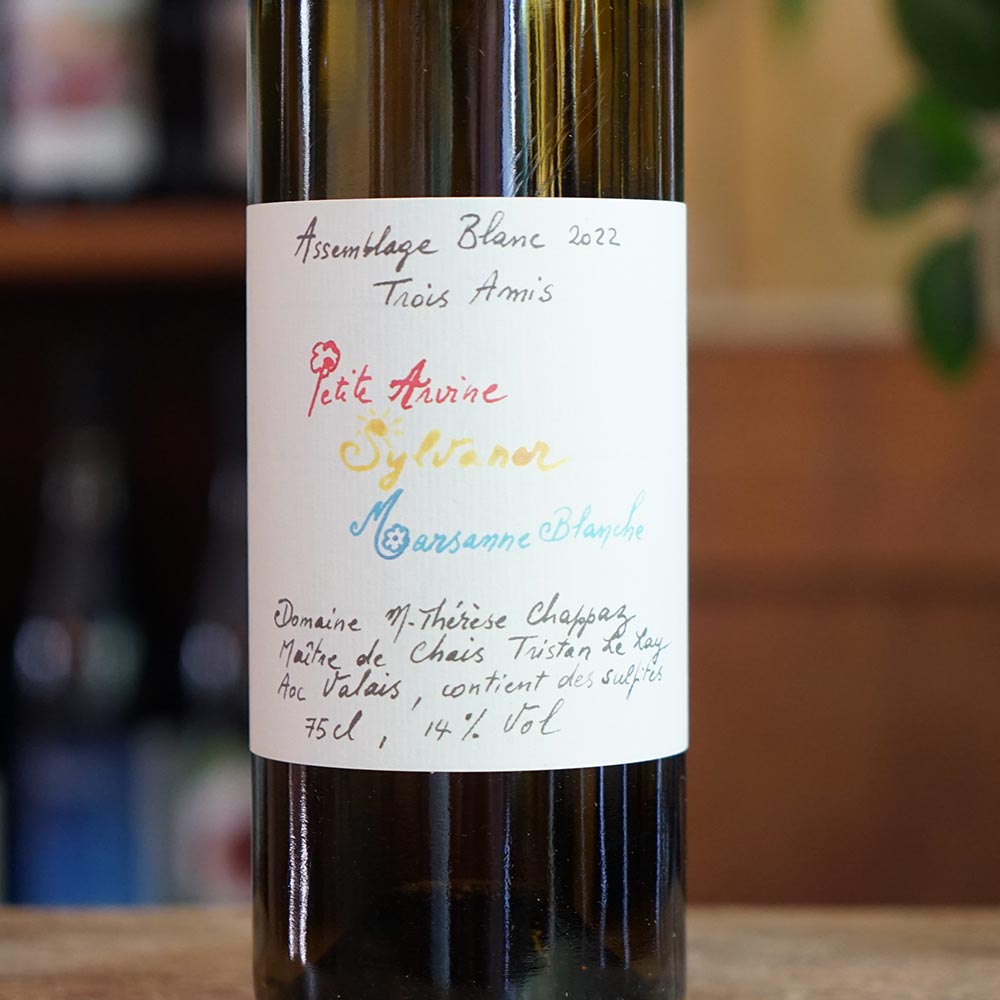 Assemblage Blanc 2022
Trois Amis
Petite Arvine
Sylvaner
Marsanne Blanche
Domaine M-Thérèse Chappaz
Maître de Chais Tristan Le Lay
Aoc Valais, contient des sulfites
75cl, 14% Vol